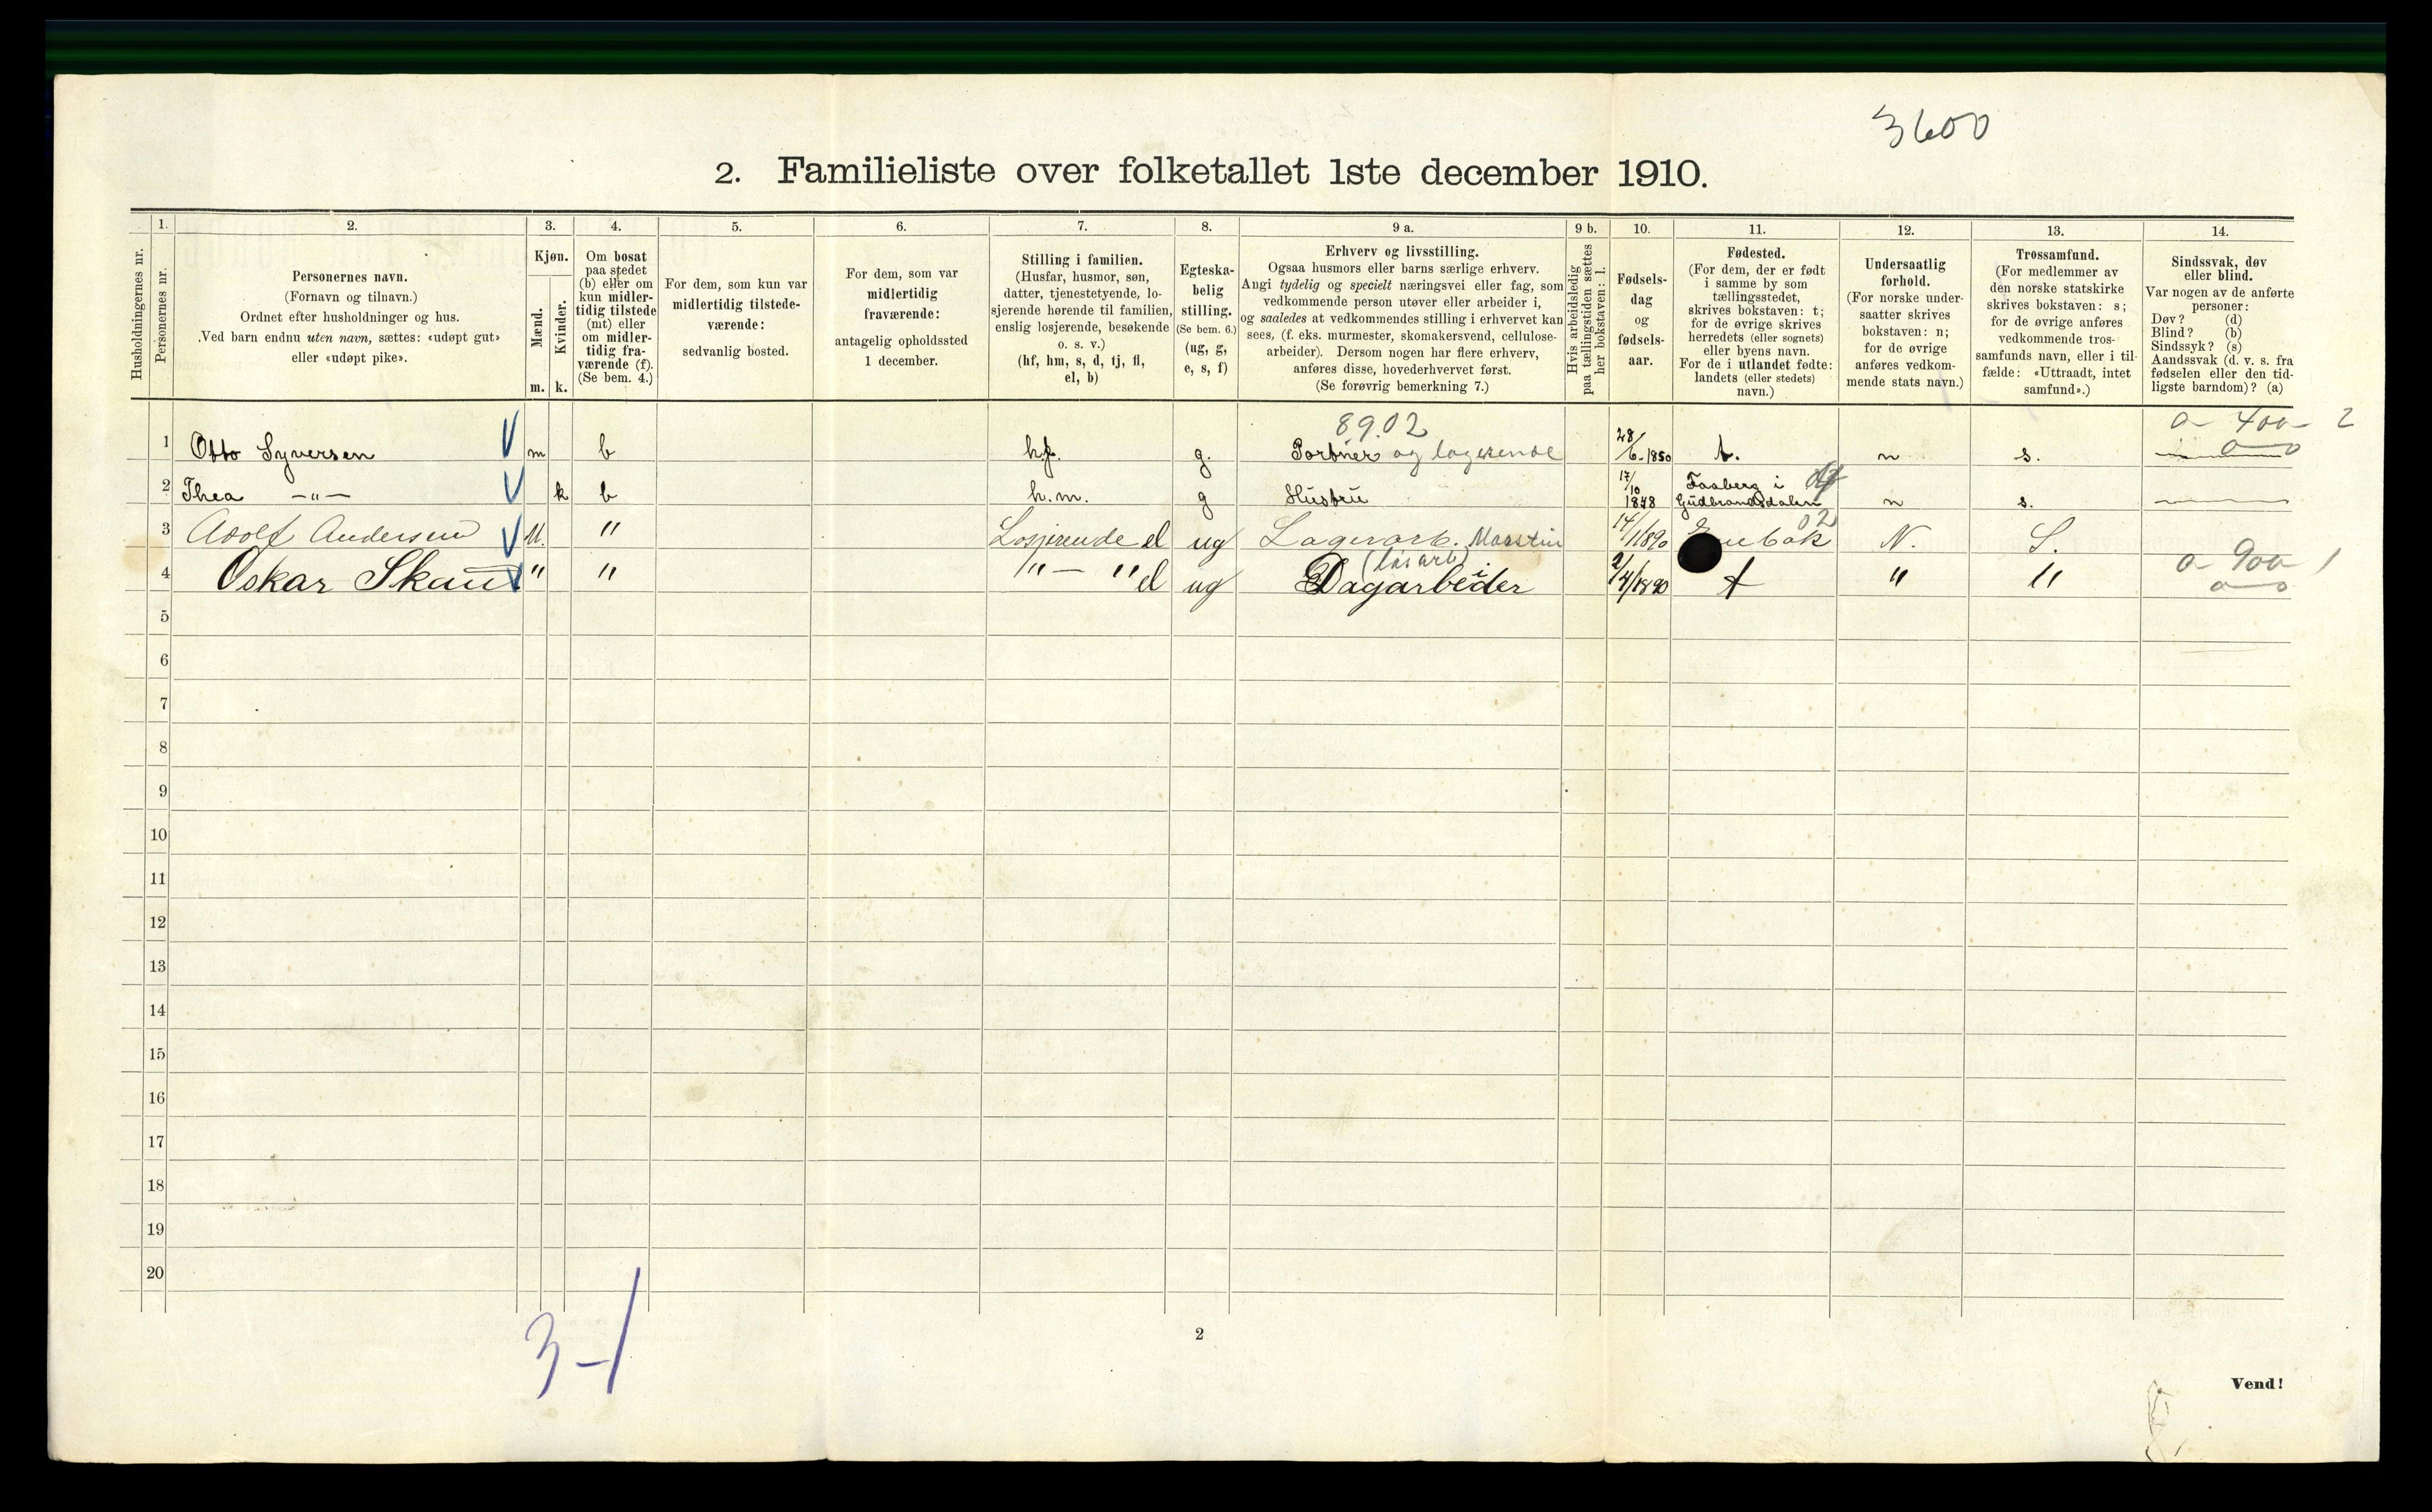 3600
2. Familieliste over folketallet 1ste december 1910.
Husholdningernes nr.
1.
Personernes nr.
2.
Personernes navn.
(Fornavn og tilnavn.)
Ordnet efter husholdninger og hus.
Ved barn endnu uten navn, sættes: «udøpt gut»
eller «udøpt pike».
3.
Kjøn.
Mænd.
m.
Kvinder.
k.
4.
Om bosat
paa stedet
(b) eller om
kun midler-
tidig tilstede
(mt) eller
om midler-
tidig fra-
værende (f).
(Se bem. 4.)
5.
For dem, som kun var
midlertidig tilstede-
værende:
sedvanlig bosted.
6.
For dem, som var
midlertidig
fraværende:
antagelig opholdssted
1 december.
7.
Stilling i familien.
(Husfar, husmor, søn,
datter, tjenestetyende, lo-
sjerende hørende til familien,
enslig losjerende, besøkende
o. s. v.)
(hf, hm, s, d, tj, fl,
el, b)
8.
Egteska-
belig
stilling.
(Se bem. 6.)
(ug, g,
e, s, f)
9 a.
Erhverv og livsstilling.
Ogsaa husmors eller barns særlige erhverv.
Angi tydelig og specielt næringsvei eller fag, som
vedkommende person utøver eller arbeider i,
og saaledes at vedkommendes stilling i erhvervet kan
sees, (f. eks. murmester, skomakersvend, cellulose-
arbeider). Dersom nogen har flere erhverv,
anføres disse, hovederhvervet først.
(Se forøvrig bemerkning 7.)
9 b.
Hvis arbeidsledig
paa tællingstiden sættes
her bokstaven: l.
10.
Fødsels-
dag
og
fødsels-
aar.
11.
Fødested.
(For dem, der er født
i samme by som
tællingsstedet,
skrives bokstaven: t;
for de øvrige skrives
herredets (eller sognets)
eller byens navn.
For de i utlandet fødte:
landets (eller stedets)
navn.)
12.
Undersaatlig
forhold.
(For norske under-
saatter skrives
bokstaven: n;
for de øvrige
anføres vedkom-
mende stats navn.)
13.
Trossamfund.
(For medlemmer av
den norske statskirke
skrives bokstaven: s;
for de øvrige anføres
vedkommende tros-
samfunds navn, eller i til-
fælde: «Uttraadt, intet
samfund».)
14.
Sindssvak, døv
eller blind.
Var nogen av de anførte
personer:
Døv? (d)
Blind? (b)
Sindssyk? (s)
Aandssvak (d. v. s. fra
fødselen eller den tid-
ligste barndom)? (a)
89.02 0-400-2
1 Otto Syversen m b hf. g. Portner og lagerende 28/6-1850 t. n s. 0-0
2 Thea -"- k b h.m. g Hustru 17/10 1848 Faaberg i Gudbrandsdalen n s.
02
3 Adolf Andersen M. " Losjerende el ug Lagerarb. 14/11890 N. S.
0-900-1
4 Oskar Skau " " "-" el ug Dagarbeider 2/4/1890 t " " 0-0
5
6
7
8
9
10
11
12
13
14
15
16
17
18
19
20
3-1
2
Vend!